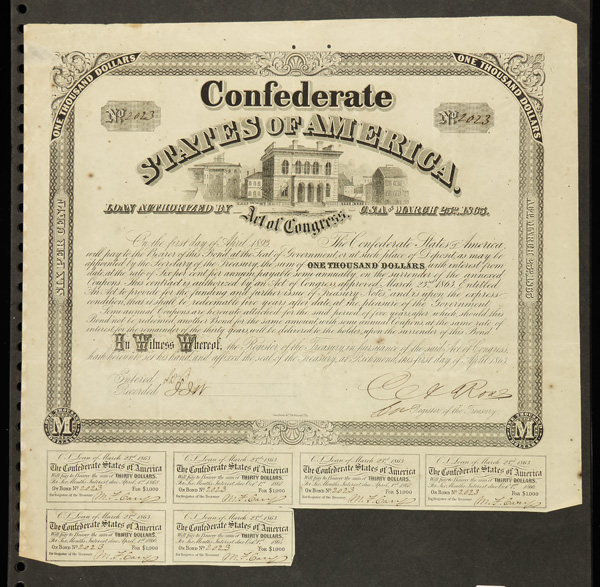 ONE THOUSAND DOLLARS
ONE THOUSAND DOLLARS
Confederate
No 2023
No 2023
STATES OF AMERICA.
LOAN AUTHORIZED BY
Act of Congress,
C.S.A. OF MARCH 23RD 1863.
SIX PER CENT
On the first day of April 1893, The Confederate States of America,
will pay to the Bearer of this Bond, at the Seat of Government, or at such place of Deposit as may be
appointed by the Secretary of the Treasury, the sum of ONE THOUSAND DOLLARS, with interest from
date, at the rate of Six per cent per annum, payable semi-annually, on the surrender of the annexed
Coupons. This contract is authorized by an Act of Congress approved March 23rd 1863, Entitled
An Act to provide for the funding and further issue of Treasury Notes, and is upon the express
condition that it shall be redeemable five years after date, at the pleasure of the Government.
Semi annual Coupons are hereunto attached for the said period of five years after which, should this
Bond not be redeemed, another Bond for the same amount with semi annual coupons at the same rate of
interest for the remainder of the thirty years, will be delivered to the holder, upon the surrender of this Bond.
In Witness Whereof, the Register of the Treasury, in pursuance of the said Act of Congress,
hath hereunto set his hand, and affixed the seal of the Treasury, at Richmond, this first day of April 1863
Entered
Recorded
Register of the Treasury
M
M
C.S. Loan of March 23rd 1863.
The Confederate States of America
Will pay to Bearer the sum of THIRTY DOLLARS.
For Six Months Interest due
ON BOND No 2023 FOR $1,000
for Register of the Treasury
C.S. Loan of March 23rd 1863.
The Confederate States of America
Will pay to Bearer the sum of THIRTY DOLLARS.
For Six Months Interest due
ON BOND No 2023 FOR $1,000
for Register of the Treasury
C.S. Loan of March 23rd 1863.
The Confederate States of America
Will pay to Bearer the sum of THIRTY DOLLARS.
For Six Months Interest due
ON BOND No 2023 FOR $1,000
for Register of the Treasury
C.S. Loan of March 23rd 1863.
The Confederate States of America
Will pay to Bearer the sum of THIRTY DOLLARS.
For Six Months Interest due
ON BOND No 2023 FOR $1,000
for Register of the Treasury
C.S. Loan of March 23rd 1863.
The Confederate States of America
Will pay to Bearer the sum of THIRTY DOLLARS.
For Six Months Interest due
ON BOND No 2023 FOR $1,000
for Register of the Treasury
C.S. Loan of March 23rd 1863.
The Confederate States of America
Will pay to Bearer the sum of THIRTY DOLLARS.
For Six Months Interest due
ON BOND No 2023 FOR $1,000
for Register of the Treasury